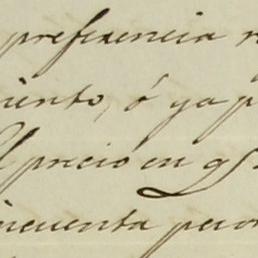 preferencia
iento, ó ya p
l precio en q S
incuenta pesos